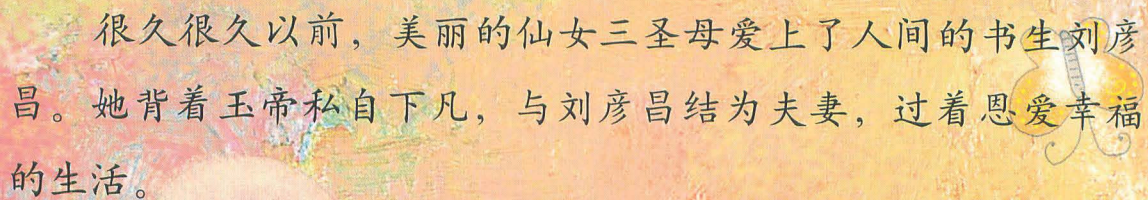 很久很久以前，美丽的仙女三圣母爱上了人间的书生刘彦
昌。她背着玉帝私自下凡，与刘彦昌结为夫妻，过着恩爱幸福
的生活。